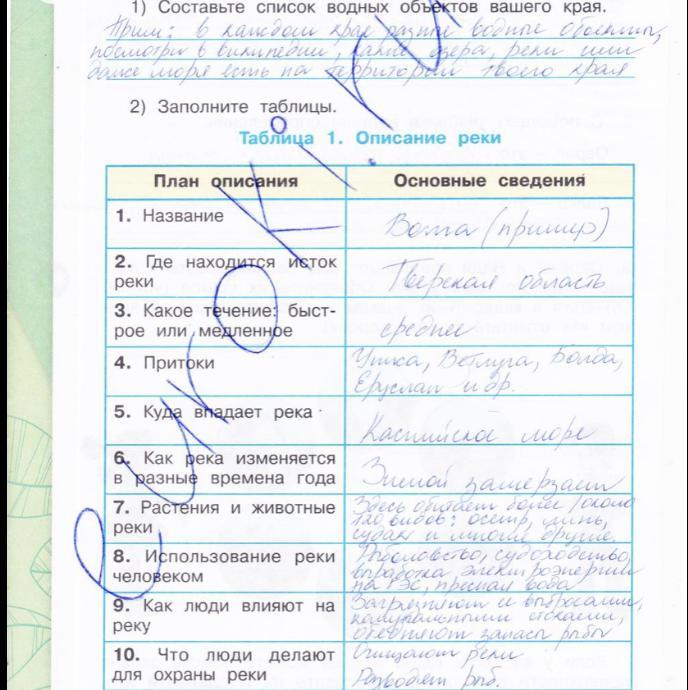 1) Составьте список водных объектов вашего края.
Прим: в каждом крае разные водные объекты,
посмотри в википедии, какие озера, реки или
даже моря есть на территории твоего края
2) Заполните таблицы.
Таблица 1. Описание реки
План описания Основные сведения
1. Название Волга (пример)
2. Где находится исток
реки Тверская область
3. Какое течение: быст-
рое или медленное среднее
4. Притоки Унжа, Ветлуга, Болда,
Еруслан и др.
5. Куда впадает река Каспийское море
6. Как река изменяется
в разные времена года Зимой замерзает
7. Растения и животные
реки Здесь обитает более / около
120 видов: осетр, линь,
судак и многие другие.
8. Использование реки
человеком Рыболовство, судоходство,
выработка электроэнергии
на ГЭС, пресная вода
9. Как люди влияют на
реку Загрязняют ее выбросами,
коммунальными стоками,
объединяют запасы рыбы
10. Что люди делают
для охраны реки Очищают реки
Разводят рыб.